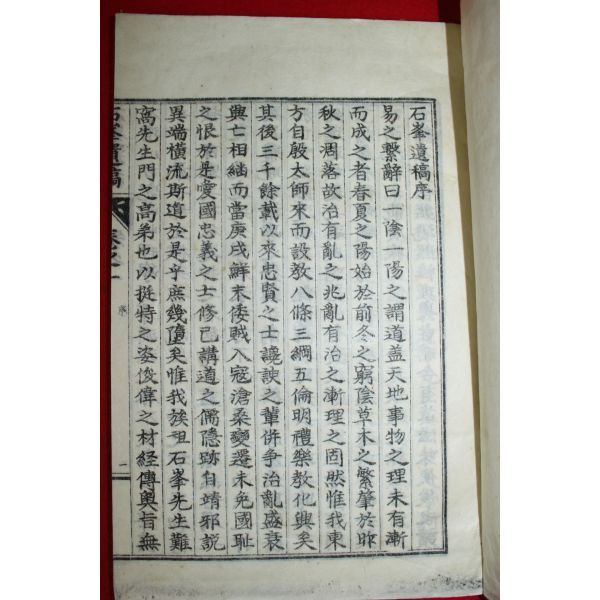 石峯遺稿序
易之繫辭曰一陰一陽之謂道盖天地事物之理未有漸
而成之者春夏之陽始於前冬之窮陰草木之繁肇於昨
秋之凋落故治有亂之兆亂有治之漸理之固然惟我東
方自殷太師來而設敎八條三綱五倫明禮樂敎化興矣
其後三千餘載以來忠賢之士讒諛之輩倂争治亂盛衰
興亡相繼而當庚戌鮮末倭賊入寇滄桑變遷未免國恥
之恨於是愛國忠義之士修己講道之儒隱跡自靖邪說
異端橫流斯道於是乎庶幾墮矣惟我族祖石峯先生難
窩先生門之高弟也以挺特之姿俊偉之材經傳奧旨無
石峯遺稿 卷之一 序 一